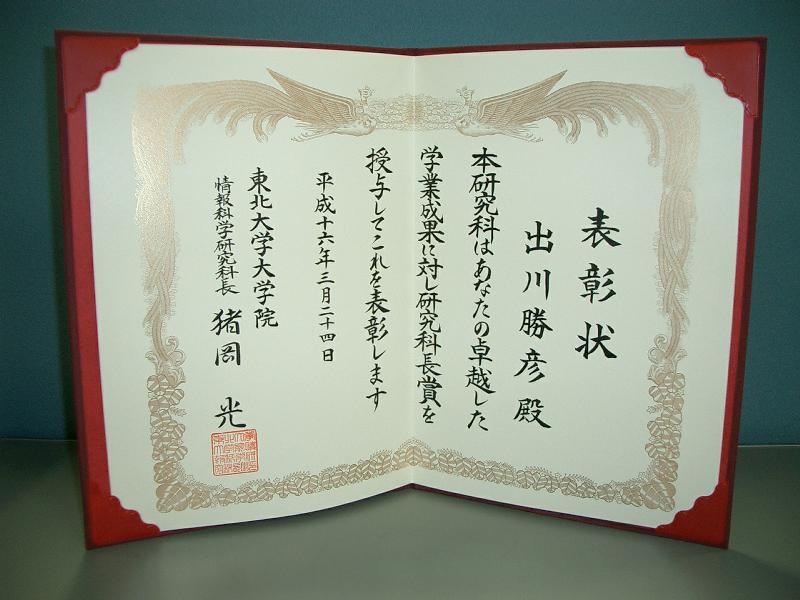 表彰状
出川勝彦殿
本研究科はあなたの卓越した
学業成果に対し研究科長賞を
授与してこれを表彰します
平成十六年三月二十四日
東北大学大学院
情報科学研究科長 猪岡 光